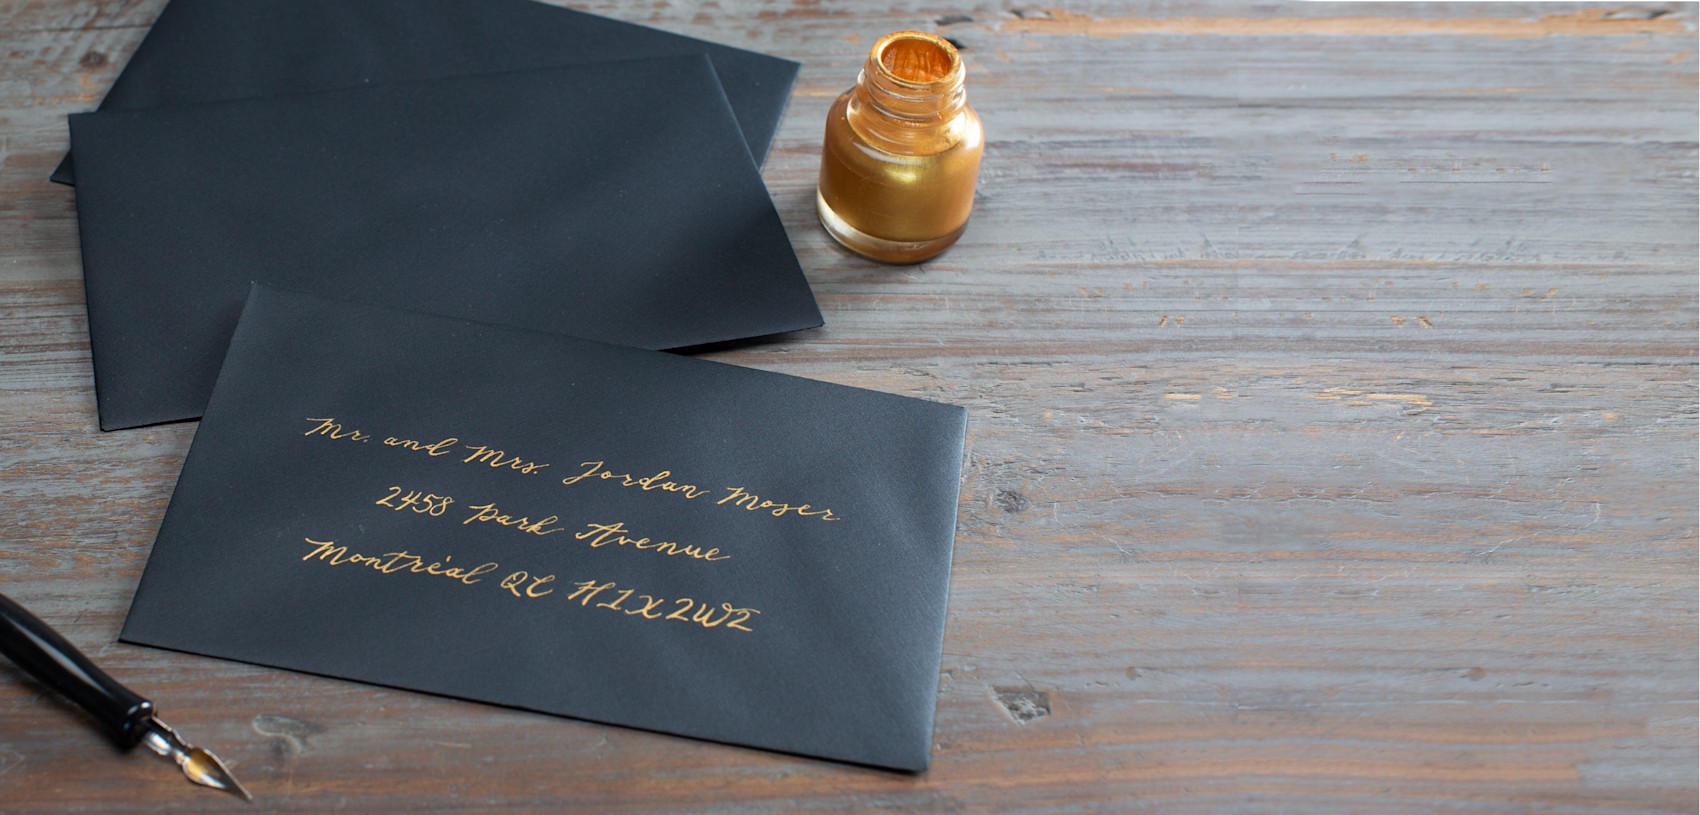 Mr. and Mrs. Jordan Moser
2458 Park Avenue
Montréal QC H1X2W2